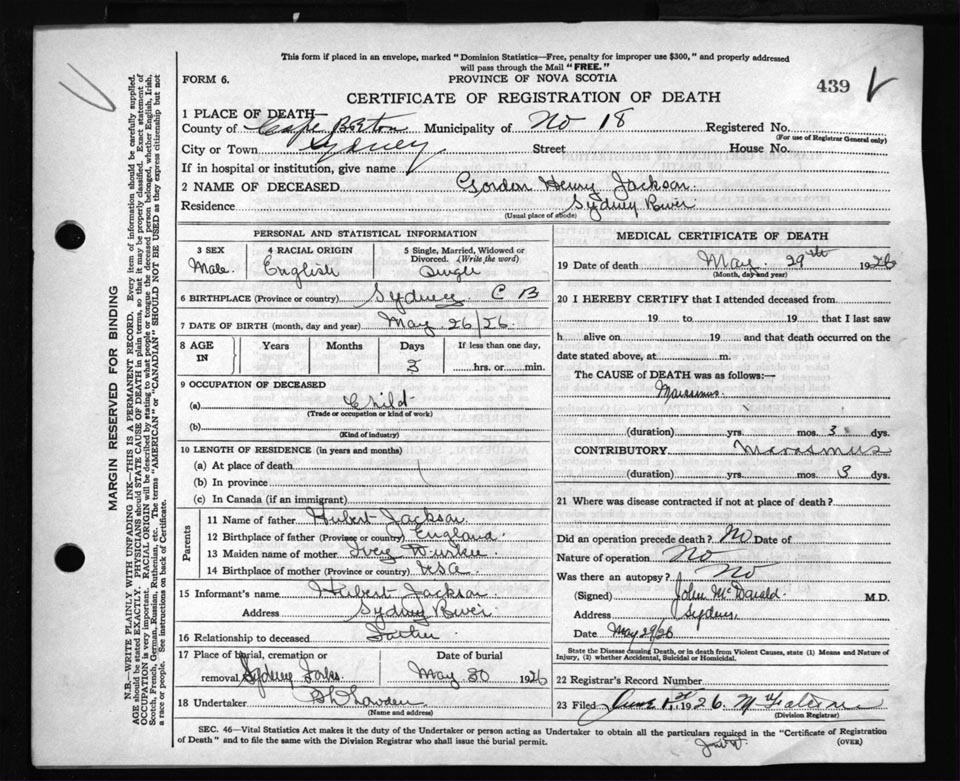 This form if placed in an envelope, marked "Dominion Statistics—Free, penalty for improper use $300," and properly addressed
will pass through the Mail "FREE."
FORM 6.
PROVINCE OF NOVA SCOTIA
439
CERTIFICATE OF REGISTRATION OF DEATH
1 PLACE OF DEATH—
County of Cape Breton Municipality of No 18 Registered No.
(For use of Registrar General only)
City or Town Sydney Street House No.
If in hospital or institution, give name
2 NAME OF DECEASED Gordon Henry Jackson
Residence Sydney River
(Usual place of abode)
PERSONAL AND STATISTICAL INFORMATION
3 SEX 4 RACIAL ORIGIN 5 Single, Married, Widowed or
Divorced. (Write the word)
Male English Single
6 BIRTHPLACE (Province or country) Sydney C B
7 DATE OF BIRTH (month, day and year) May 26/26
8 AGE IN Years Months Days If less than one day,
3 hrs. or min.
9 OCCUPATION OF DECEASED
(a) Child
(Trade or occupation or kind of work)
(b)
(Kind of industry)
10 LENGTH OF RESIDENCE (in years and months)
(a) At place of death
(b) In province
(c) In Canada (if an immigrant)
Parents
11 Name of father Hubert Jackson
12 Birthplace of father (Province or country) England
13 Maiden name of mother
14 Birthplace of mother (Province or country) USA
15 Informant's name Hubert Jackson
Address Sydney River
16 Relationship to deceased Father
17 Place of burial, cremation or Date of burial
removal Sydney May 30 1926
18 Undertaker
(Name and address)
MEDICAL CERTIFICATE OF DEATH
19 Date of death May 29th 1926
(Month, day and year)
20 I HEREBY CERTIFY that I attended deceased from
19 to 19 that I last saw
h alive on 19 and that death occurred on the
date stated above, at m.
The CAUSE OF DEATH was as follows:—
Marasmus
(duration) yrs. mos. 3 dys.
CONTRIBUTORY Marasmus
(duration) yrs. mos. 3 dys.
21 Where was disease contracted if not at place of death?
Did an operation precede death? No Date of
Nature of operation No
Was there an autopsy? No
(Signed) John McDonald M.D.
Address Sydney
Date May 29/26
State the Disease causing Death, or in death from Violent Causes, state (1) Means and Nature of
Injury, (2) whether Accidental, Suicidal or Homicidal.
22 Registrar's Record Number
23 Filed June 1st 1926
(Division Registrar)
SEC. 46—Vital Statistics Act makes it the duty of the Undertaker or person acting as Undertaker to obtain all the particulars required in the "Certificate of Registration
of Death" and to file the same with the Division Registrar who shall issue the burial permit.
(OVER)
MARGIN RESERVED FOR BINDING
N.B.—WRITE PLAINLY WITH UNFADING INK—THIS IS A PERMANENT RECORD. Every item of information should be carefully supplied.
AGE should be stated EXACTLY. PHYSICIANS should STATE CAUSE OF DEATH in plain terms, so that it may be properly classified. Exact statement of
OCCUPATION is very important. RACIAL ORIGIN will be described by stating to what people or tongue the deceased person belonged, whether English, Irish,
Scotch, French, German, Russian, Ruthenian, etc. The terms "AMERICAN" or "CANADIAN" SHOULD NOT BE USED as they express citizenship but not
a race or people. See instructions on back of Certificate.